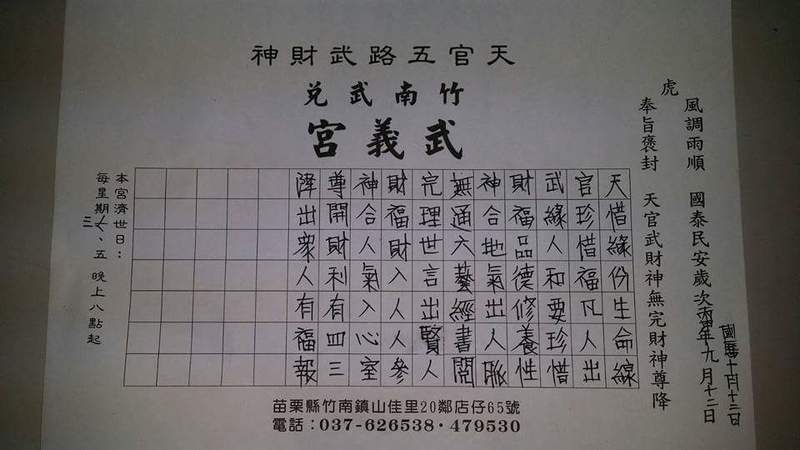 天官五路武財神
竹南武兌
武義宮
虎
風調雨順 國泰民安歲次丙申年九月十三日
國曆十月十三日
奉旨褒封 天官武財神無完財神尊降
天惜緣份生命線
官珍惜福凡人出
武緣人和要珍惜
財福品德修養性
神合地氣出人脈
無通六藝經書閱
完理世言出賢人
財福財入人人參
神合人氣入心室
尊開財利有四三
降出衆人有福報
本宮濟世日：
每星期三、五 晚上八點起
苗栗縣竹南鎮山佳里20鄰店仔65號
電話：037-626538·479530